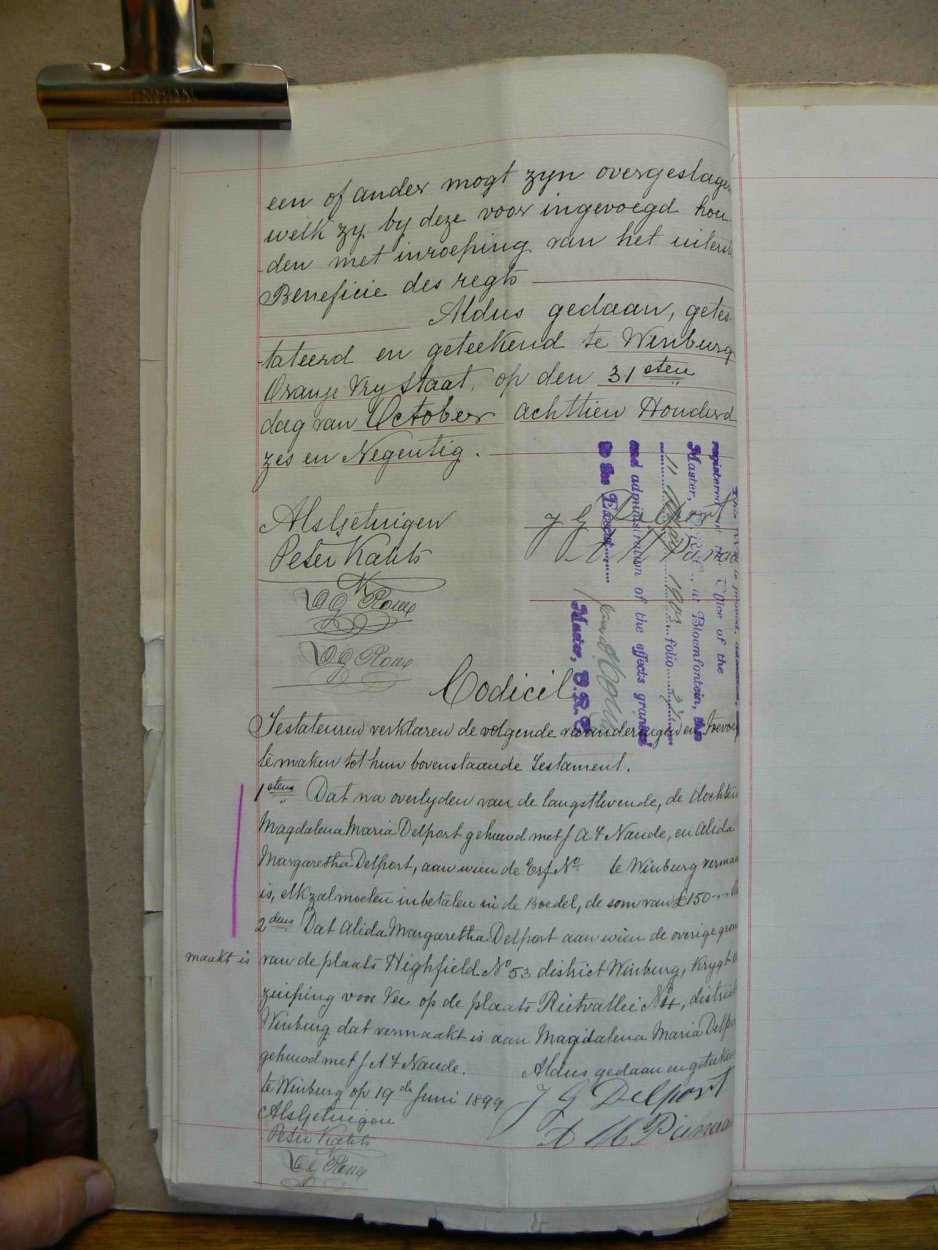 een of ander mogt zyn overgeslagen
welk zy by deze voor ingevoegd hou
den met inroeping van het uiters
Beneficie des regts
Aldus gedaan, getes
tateerd en geteekend te Winburg
Oranje Vry Staat, op den 31 sten
dag van October achttien Honderd
zes en Negentig.
Als Getuigen
Peter Kahts
J G Delport
Codicil
Testateuren verklaren de volgende veranderingen en toevoe
te maken tot hun bovenstaande Testament.
1 stens Dat na overlyden van de langstlevende, de dochter
Magdalena Maria Delport gehuwd met J A F Naude, en Alida
Margaretha Delport, aan wien de Erf No te Winburg vermaa
is, elk zal moeten inbetalen in de Boedel, de som van £150
2 dens Dat Alida Margaretha Delport aan wien de overige gron
maakt is
van de plaats Highfield No 53 district Winburg, krygt
zuiping voor Vee op de plaats Rietvallei No, district
Winburg dat vermaakt is aan Magdalena Maria Delpo
gehuwd met J A F Naude. Aldus gedaan en geteeken
te Winburg op 19 de Juni 1899
Als Getuigen
Peter Kahts
J G Delport
registered in the Office of the
Master, O.R.C., at Bloemfontein, this
11 May 1903 folio
and administration of the effects granted
to the Execut
Master, O.R.C.